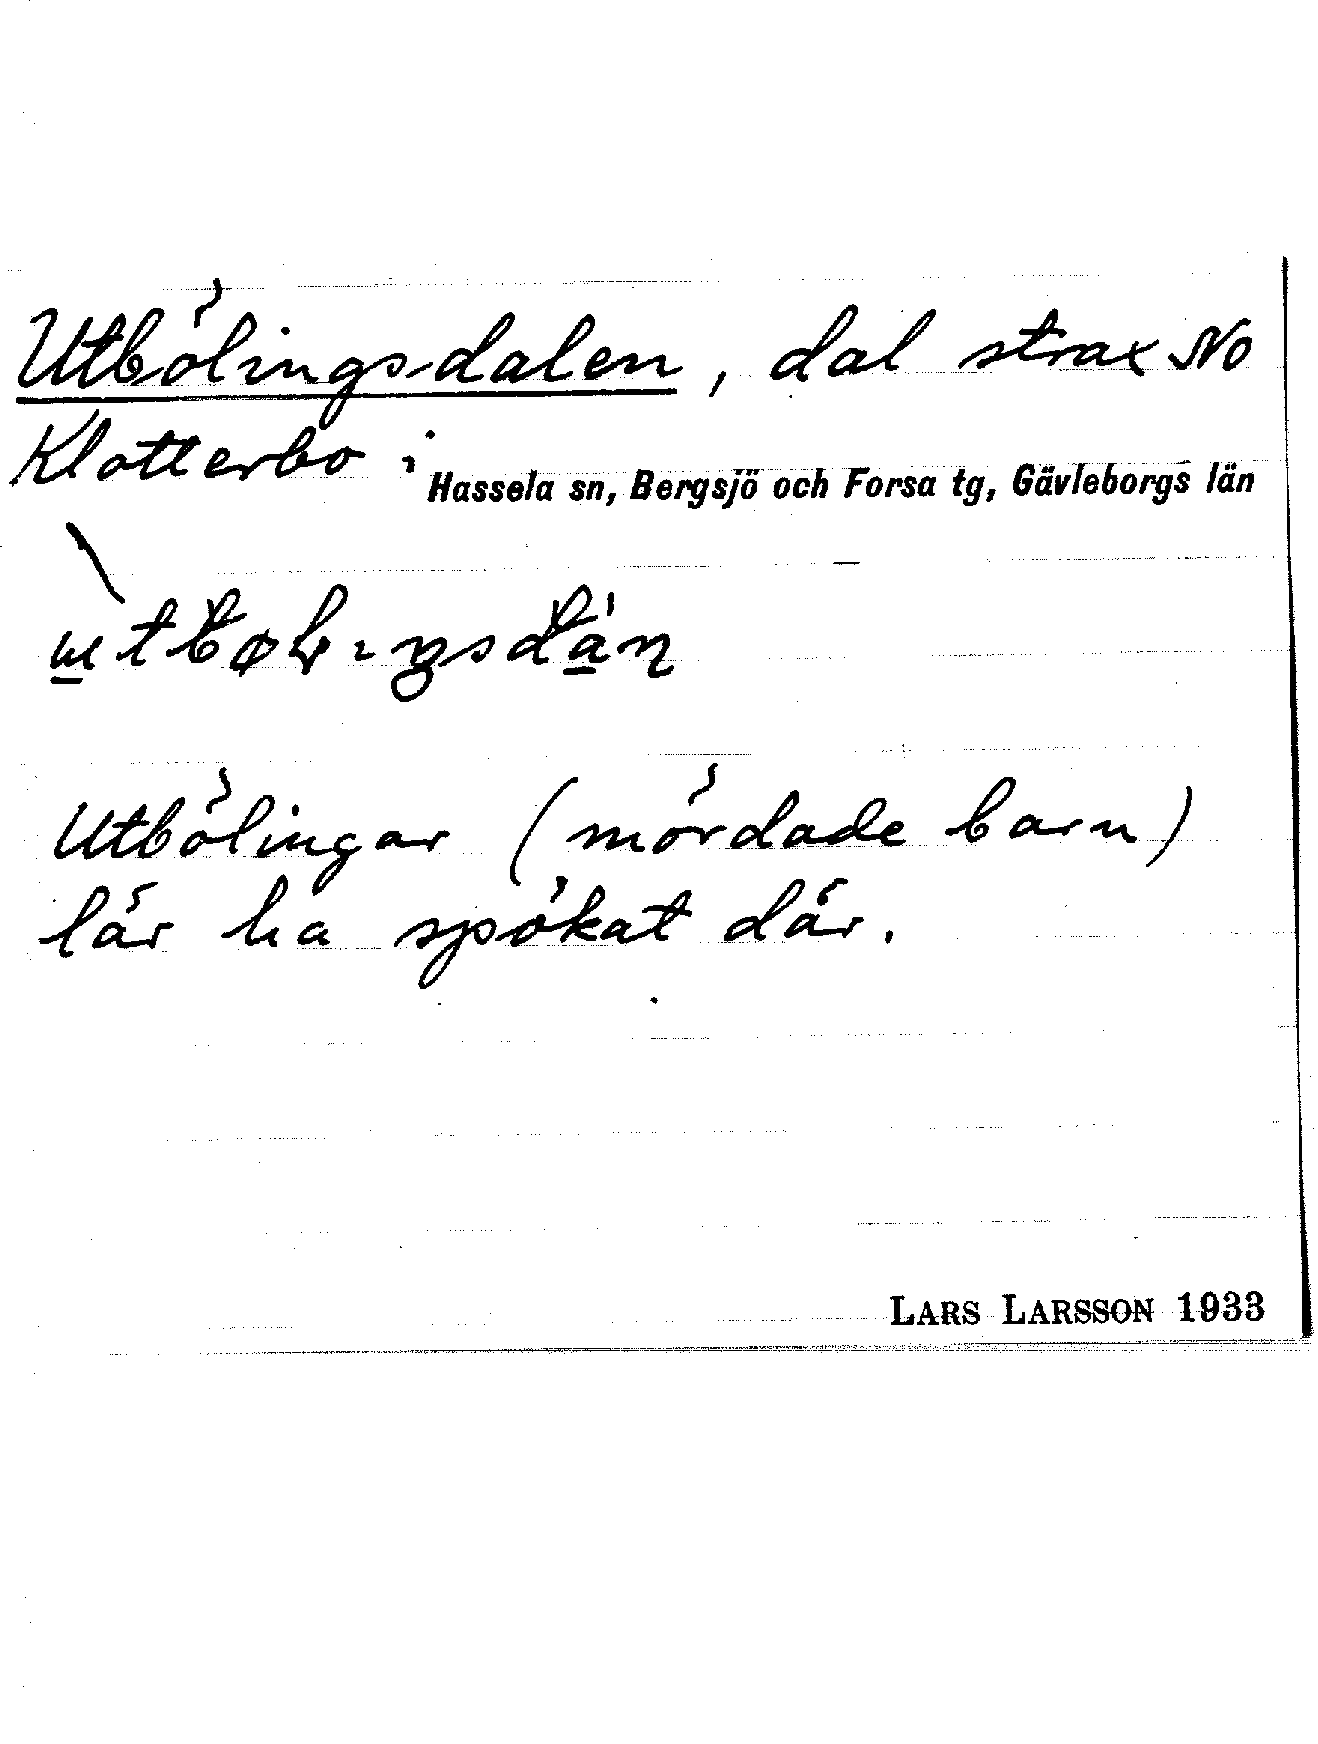 Utbölingsdalen, dal strax NO
Klotterbo i
Hassela sn, Bergsjö och Forsa tg, Gävleborgs län
Utbölingar (mördade barn)
lär ha spökat där.
LARS LARSSON 1933